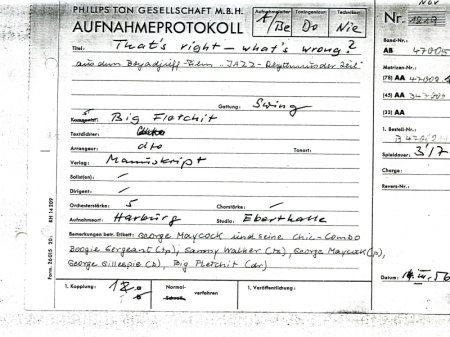 NOV
PHILIPS TON GESELLSCHAFT M.B.H.
AUFNAHMEPROTOKOLL
Aufnahmeleiter
Toningenieur
Techniker:
A/Be Do Nie
Nr. 1219
Titel: That's right – what's wrong?
aus dem Bejadjriff-Film „JAZZ-Rhythmus der Zeit"
Band-Nr.
AB 47005
Matrizen-Nr.
(78) AA
(45) AA
(33) AA
1. Bestell-Nr.
Spieldauer: 3'17
Charge:
Revers-Nr.
Gattung: Swing
Komponist: Big Fletchit
Textdichter:
Arrangeur: dto
Tonart:
Verlag: Manuskript
Solist(en): –
Dirigent: –
Orchesterstärke: 5
Chorstärke: –
Aufnahmeort: Harburg
Studio: Eberthalle
Bemerkungen betr. Etikett: George Maycock und seine Chic-Combo
Boogie Sergeant (tp), Sammy Walker (ts), George Maycock (p),
George Gillespie (b), Big Fletchit (dr)
Datum: 56
1. Kopplung:
Normal-
verfahren
1. Veröffentlichung:
Form. 26 015 20. RH 14 209